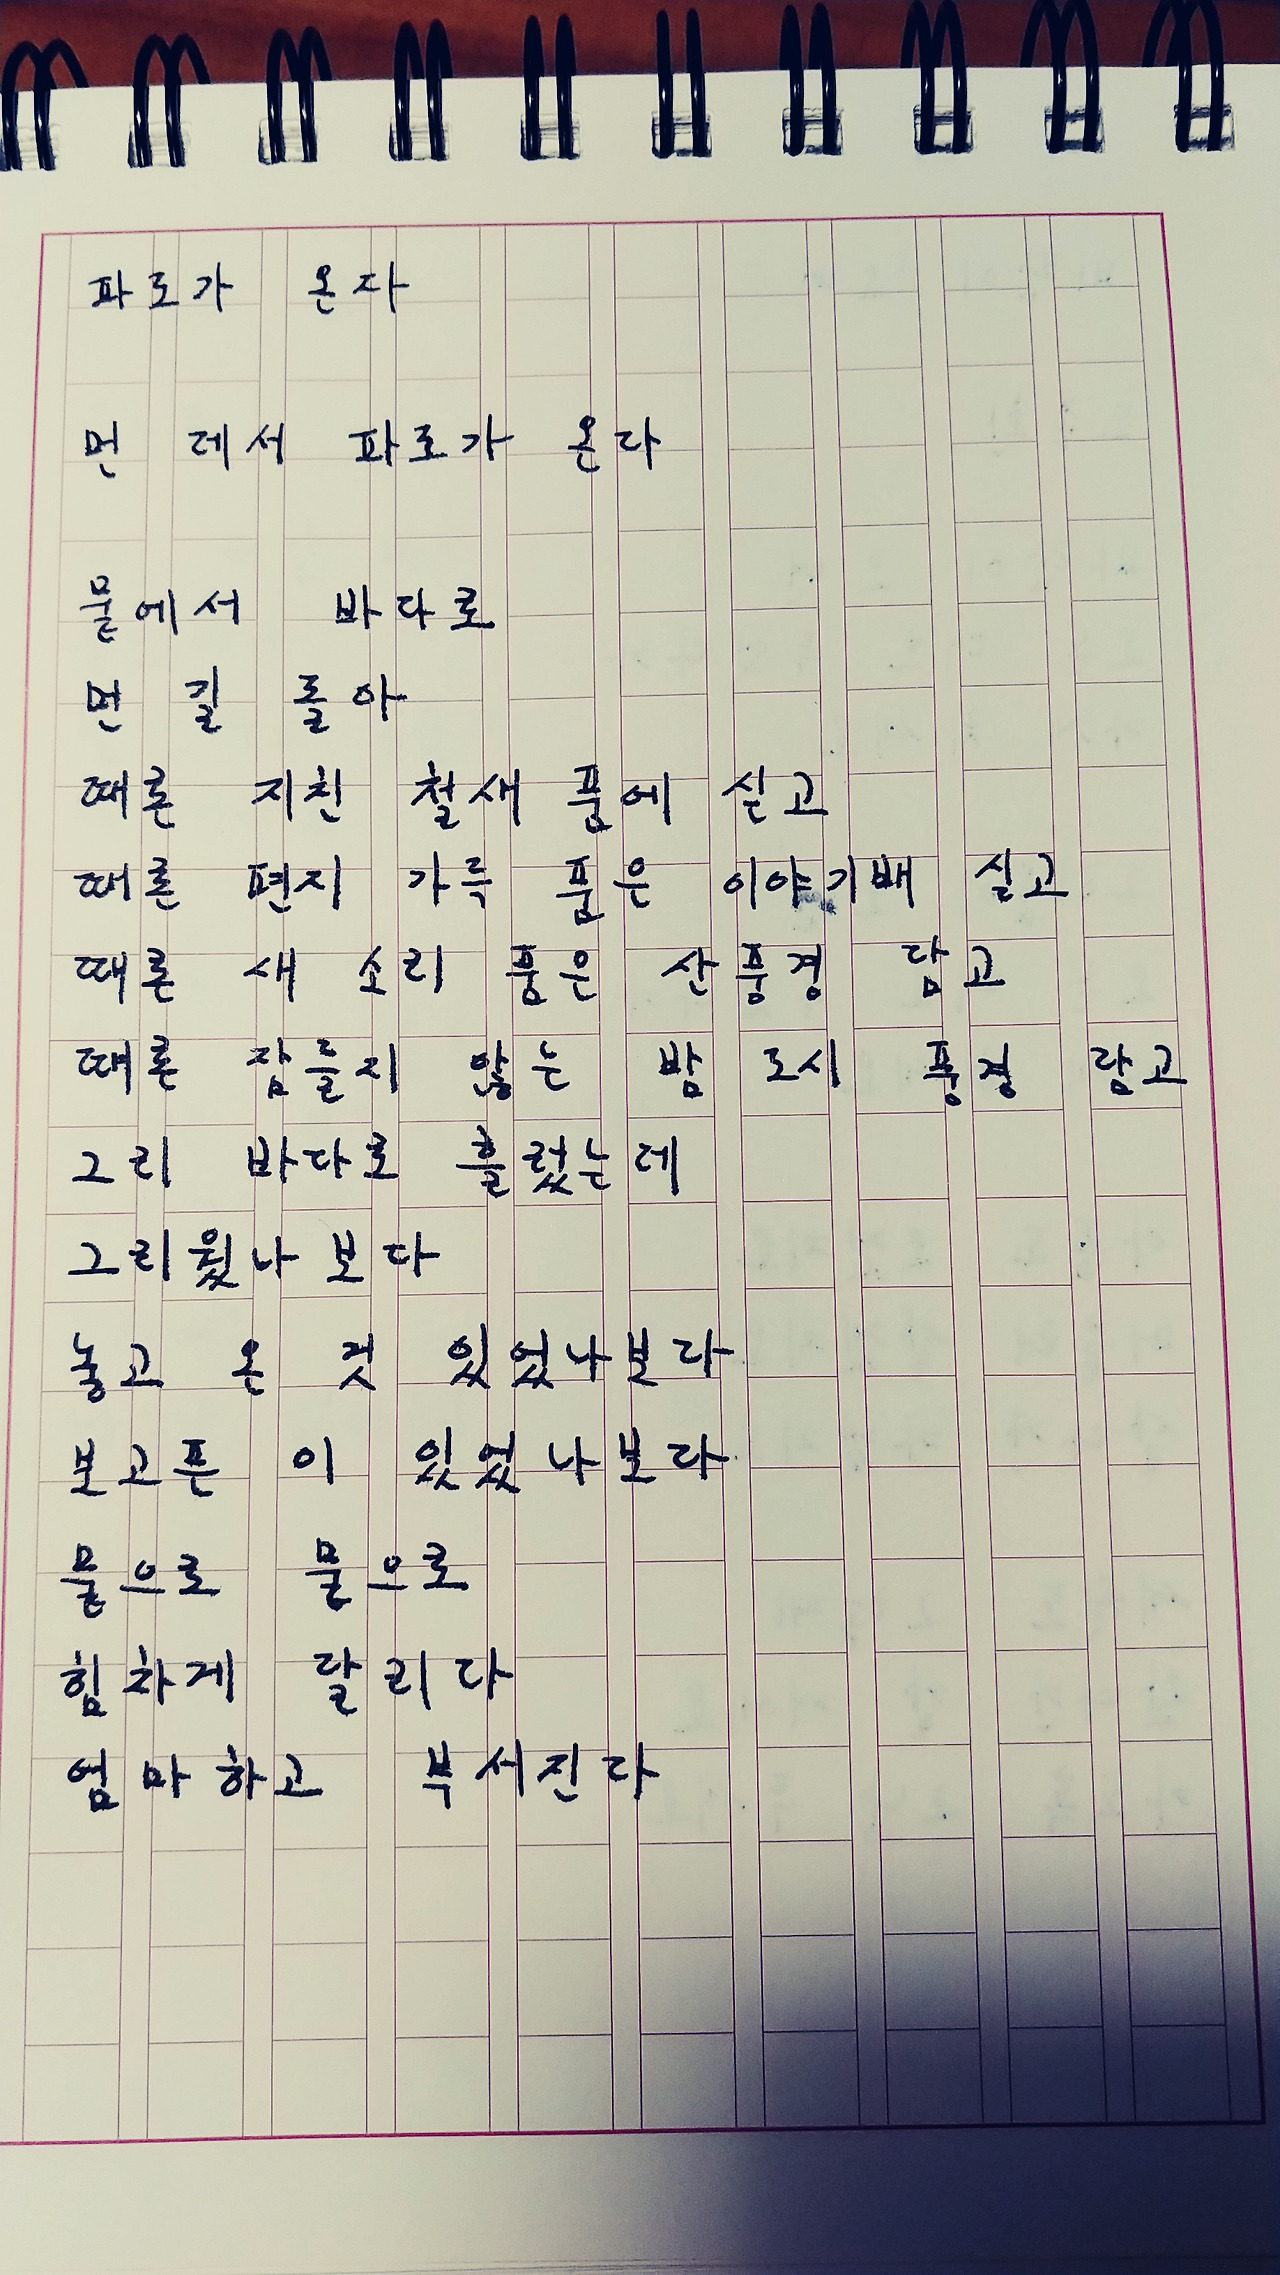 파도가 온다
먼 데서 파도가 온다
뭍에서 바다로
먼 길 돌아
때론 지친 철새 품에 싣고
때론 편지 가득 품은 이야기배 싣고
때론 새 소리 품은 산풍경 담고
때론 잠들지 않는 밤 도시 풍경 담고
그리 바다로 흘렀는데
그리웠나 보다
놓고 온 것 있었나보다
보고픈 이 있었나보다
뭍으로 뭍으로
힘차게 달리다
엄마하고 부서진다